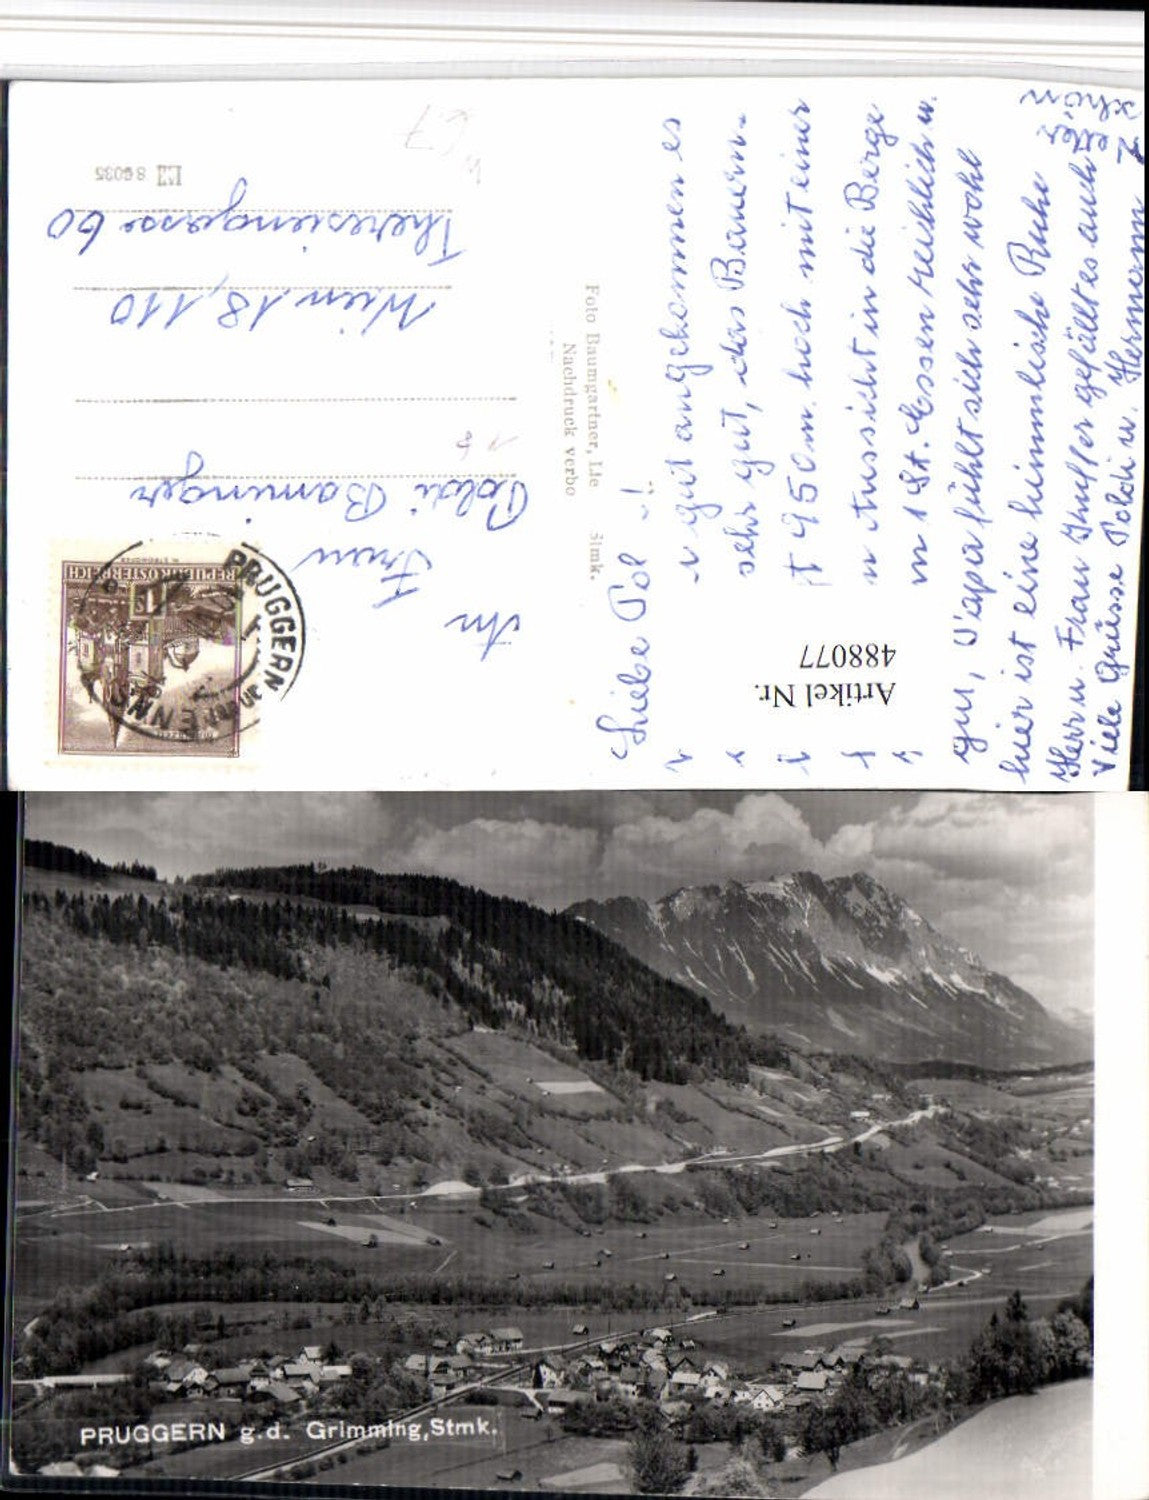 Liebe Pol !
gut angekommen es
sehr gut, das Bauern-
950 m. hoch mit einer
Aussicht in die Berge
1 St. Essen reichlich u.
gut, Papa fühlt sich sehr wohl
hier ist eine himmlische Ruhe
Herr u. Frau gefällt es auch
Viele Grüsse Poldi u. Hermann
schön
Artikel Nr.
488077
Foto Baumgartner, Stmk.
Nachdruck verbo
REPUBLIK ÖSTERREICH
PRUGGERN
ENNS
An
Frau
Poldi
Wien 18, 110
Theresiengasse 60
86035
PRUGGERN g.d. Grimming, Stmk.